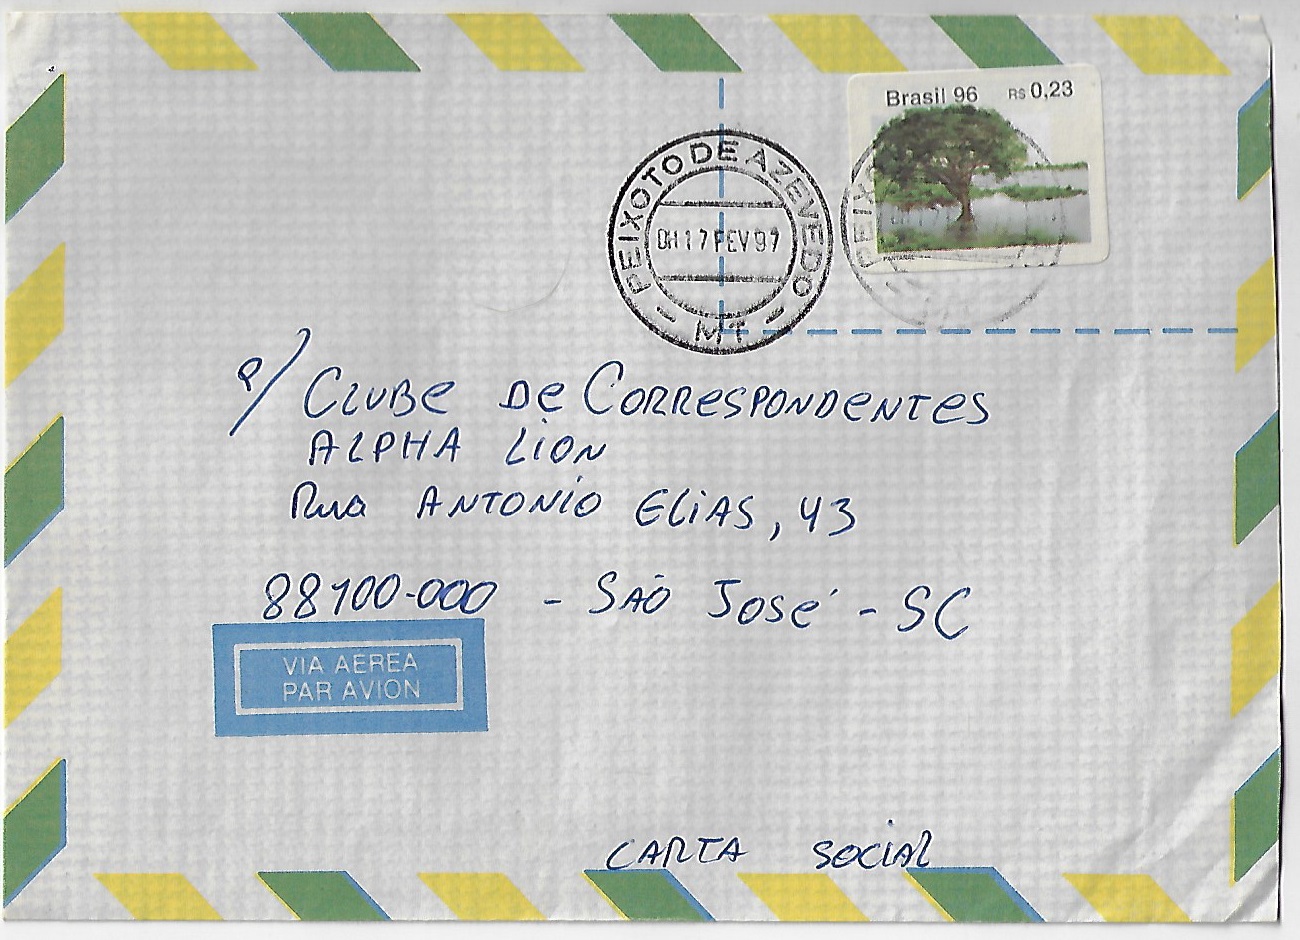 Brasil 96 R$ 0,23
PANTANAL
PEIXOTO DE AZEVEDO
17 FEV 97
MT
PEIXO
P/ CLUBE DE CORRESPONDENTES
ALPHA LION
RUA ANTONIO ELIAS, 43
88100-000 - SÃO JOSÉ - SC
VIA AEREA
PAR AVION
CARTA SOCIAL